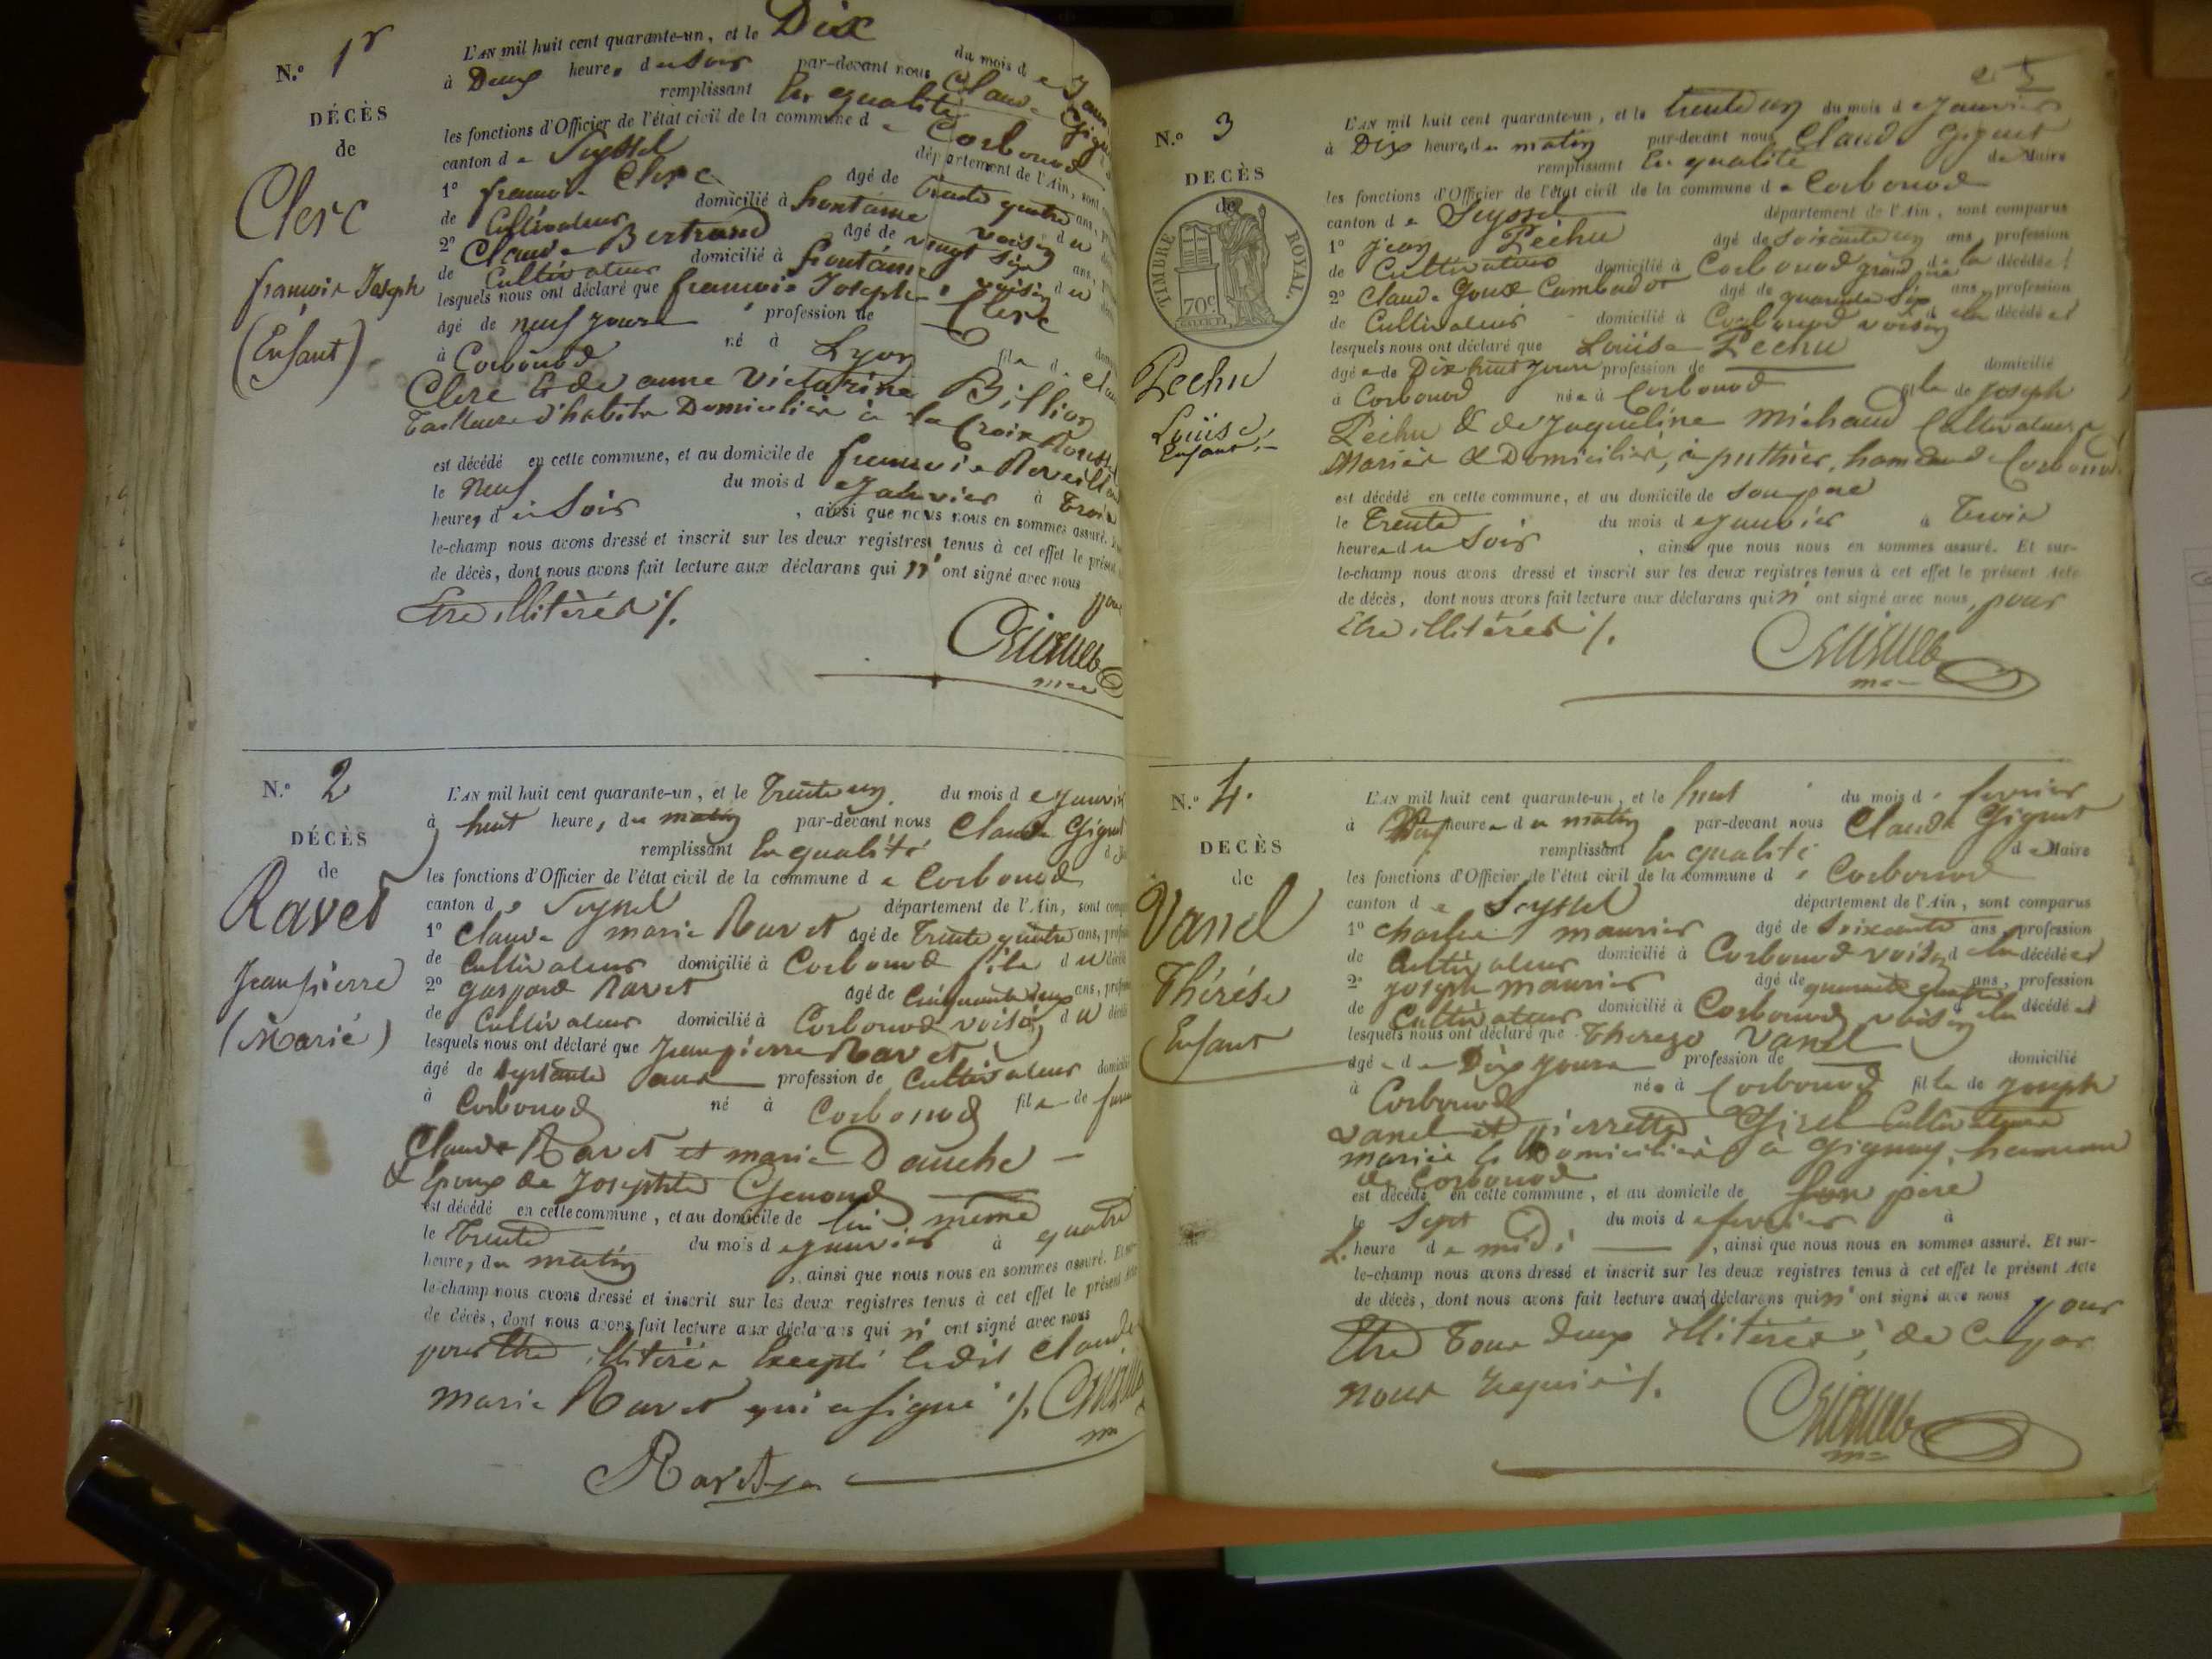 N.º 1r
DÉCÈS
de
Clerc
francois Joseph
(Enfant)
L'AN mil huit cent quarante-un, et le Dix
du mois de
à Deux heures du Soir par-devant nous Claude
remplissant En qualité
les fonctions d'Officier de l'état civil de la commune de Corbonod
canton de Seyssel département de l'Ain, sont
1º francois Clerc âgé de trente quatre ans,
de Cultivateur domicilié à fontaine voisin du
2º Claude Bertrand âgé de vingt six ans,
de Cultivateur domicilié à fontaine voisin du
lesquels nous ont déclaré que francois Joseph Clerc
âgé de neuf jours profession de
à Corbonod né à Lyon fils de
Clerc et de anne Victorine Billion
Tailleurs d'habits Domiciliés à la Croix Rousse
est décédé en cette commune, et au domicile de francois
le neuf du mois de janvier à trois
heures du Soir, ainsi que nous nous en sommes assuré.
le-champ nous avons dressé et inscrit sur les deux registres tenus à cet effet le présent
de décès, dont nous avons fait lecture aux déclarans qui n'ont signé avec nous
Etre illitérés /.
N.º 2
DÉCÈS
de
Ravet
Jeanpierre
(Marié)
L'AN mil huit cent quarante-un, et le Trente un du mois de janvier
à huit heures du matin par-devant nous Claude Gignet
remplissant En qualité
les fonctions d'Officier de l'état civil de la commune de Corbonod
canton de Seyssel département de l'Ain, sont
1º Claude marie Ravet âgé de Trente quatre ans,
de Cultivateur domicilié à Corbonod fils du
2º gaspard Ravet âgé de Cinquante deux ans,
de Cultivateur domicilié à Corbonod voisin du
lesquels nous ont déclaré que Jeanpierre Ravet
âgé de septante ans profession de Cultivateur
à Corbonod né à Corbonod fils de feu
Claude Ravet et marie Dauche
& Epoux de Josephte Genoud
est décédé en cette commune, et au domicile de lui même
le Trente du mois de janvier à quatre
heures du matin, ainsi que nous nous en sommes assuré.
le-champ nous avons dressé et inscrit sur les deux registres tenus à cet effet le présent
de décès, dont nous avons fait lecture aux déclarans qui n'ont signé avec nous
pour Etre illitérés Excepté ledit Claude
marie Ravet qui a signé /.
Ravet
N.º 3
DECÈS
de
TIMBRE ROYAL.
70c.
Pechu
Louise
Enfant
L'AN mil huit cent quarante-un, et le trente un du mois de janvier
à Dix heures du matin par-devant nous Claude Gignet
remplissant En qualité de Maire
les fonctions d'Officier de l'état civil de la commune de Corbonod
canton de Seyssel département de l'Ain, sont comparus
1º jean Pechu âgé de soixante un ans, profession
de Cultivateur domicilié à Corbonod grand père de la décédée
2º Claude Goux Cambador âgé de quarante six ans, profession
de Cultivateur domicilié à Corbonod voisin de la décédée
lesquels nous ont déclaré que Louise Pechu
âgée de Dix huit jours profession de domicilié
à Corbonod née à Corbonod fille de Joseph
Pechu & de Jaqueline Michaud Cultivateurs
Mariés & Domiciliés, à puthier, hameau de Corbonod
est décédé en cette commune, et au domicile de son père
le Trente du mois de janvier à Trois
heures du Soir, ainsi que nous nous en sommes assuré. Et sur-
le-champ nous avons dressé et inscrit sur les deux registres tenus à cet effet le présent Acte
de décès, dont nous avons fait lecture aux déclarans qui n'ont signé avec nous, pour
Etre illitérés /.
N.º 4.
DECÈS
de
Vanel
Thérése
Enfant
L'AN mil huit cent quarante-un, et le huit du mois de fevrier
à heures du matin par-devant nous Claude Gignet
remplissant En qualité de Maire
les fonctions d'Officier de l'état civil de la commune de Corbonod
canton de Seyssel département de l'Ain, sont comparus
1º Charles maurier âgé de Soixante ans, profession
de Cultivateur domicilié à Corbonod voisin de la décédée
2º joseph maurier âgé de quarante quatre ans, profession
de Cultivateur domicilié à Corbonod voisin de la décédée
lesquels nous ont déclaré que Therese Vanel
âgée de Dix jours profession de domicilié
à Corbonod née à Corbonod fille de joseph
vanel et pierrette Girel Cultivateurs
mariés & Domiciliés à gignay, hameau
de Corbonod
est décédé en cette commune, et au domicile de son père
le Sept du mois de fevrier à
L'heure de midi, ainsi que nous nous en sommes assuré. Et sur-
le-champ nous avons dressé et inscrit sur les deux registres tenus à cet effet le présent Acte
de décès, dont nous avons fait lecture aux déclarans qui n'ont signé avec nous pour
Etre Tous deux illitérés, de ce par
nous requis /.